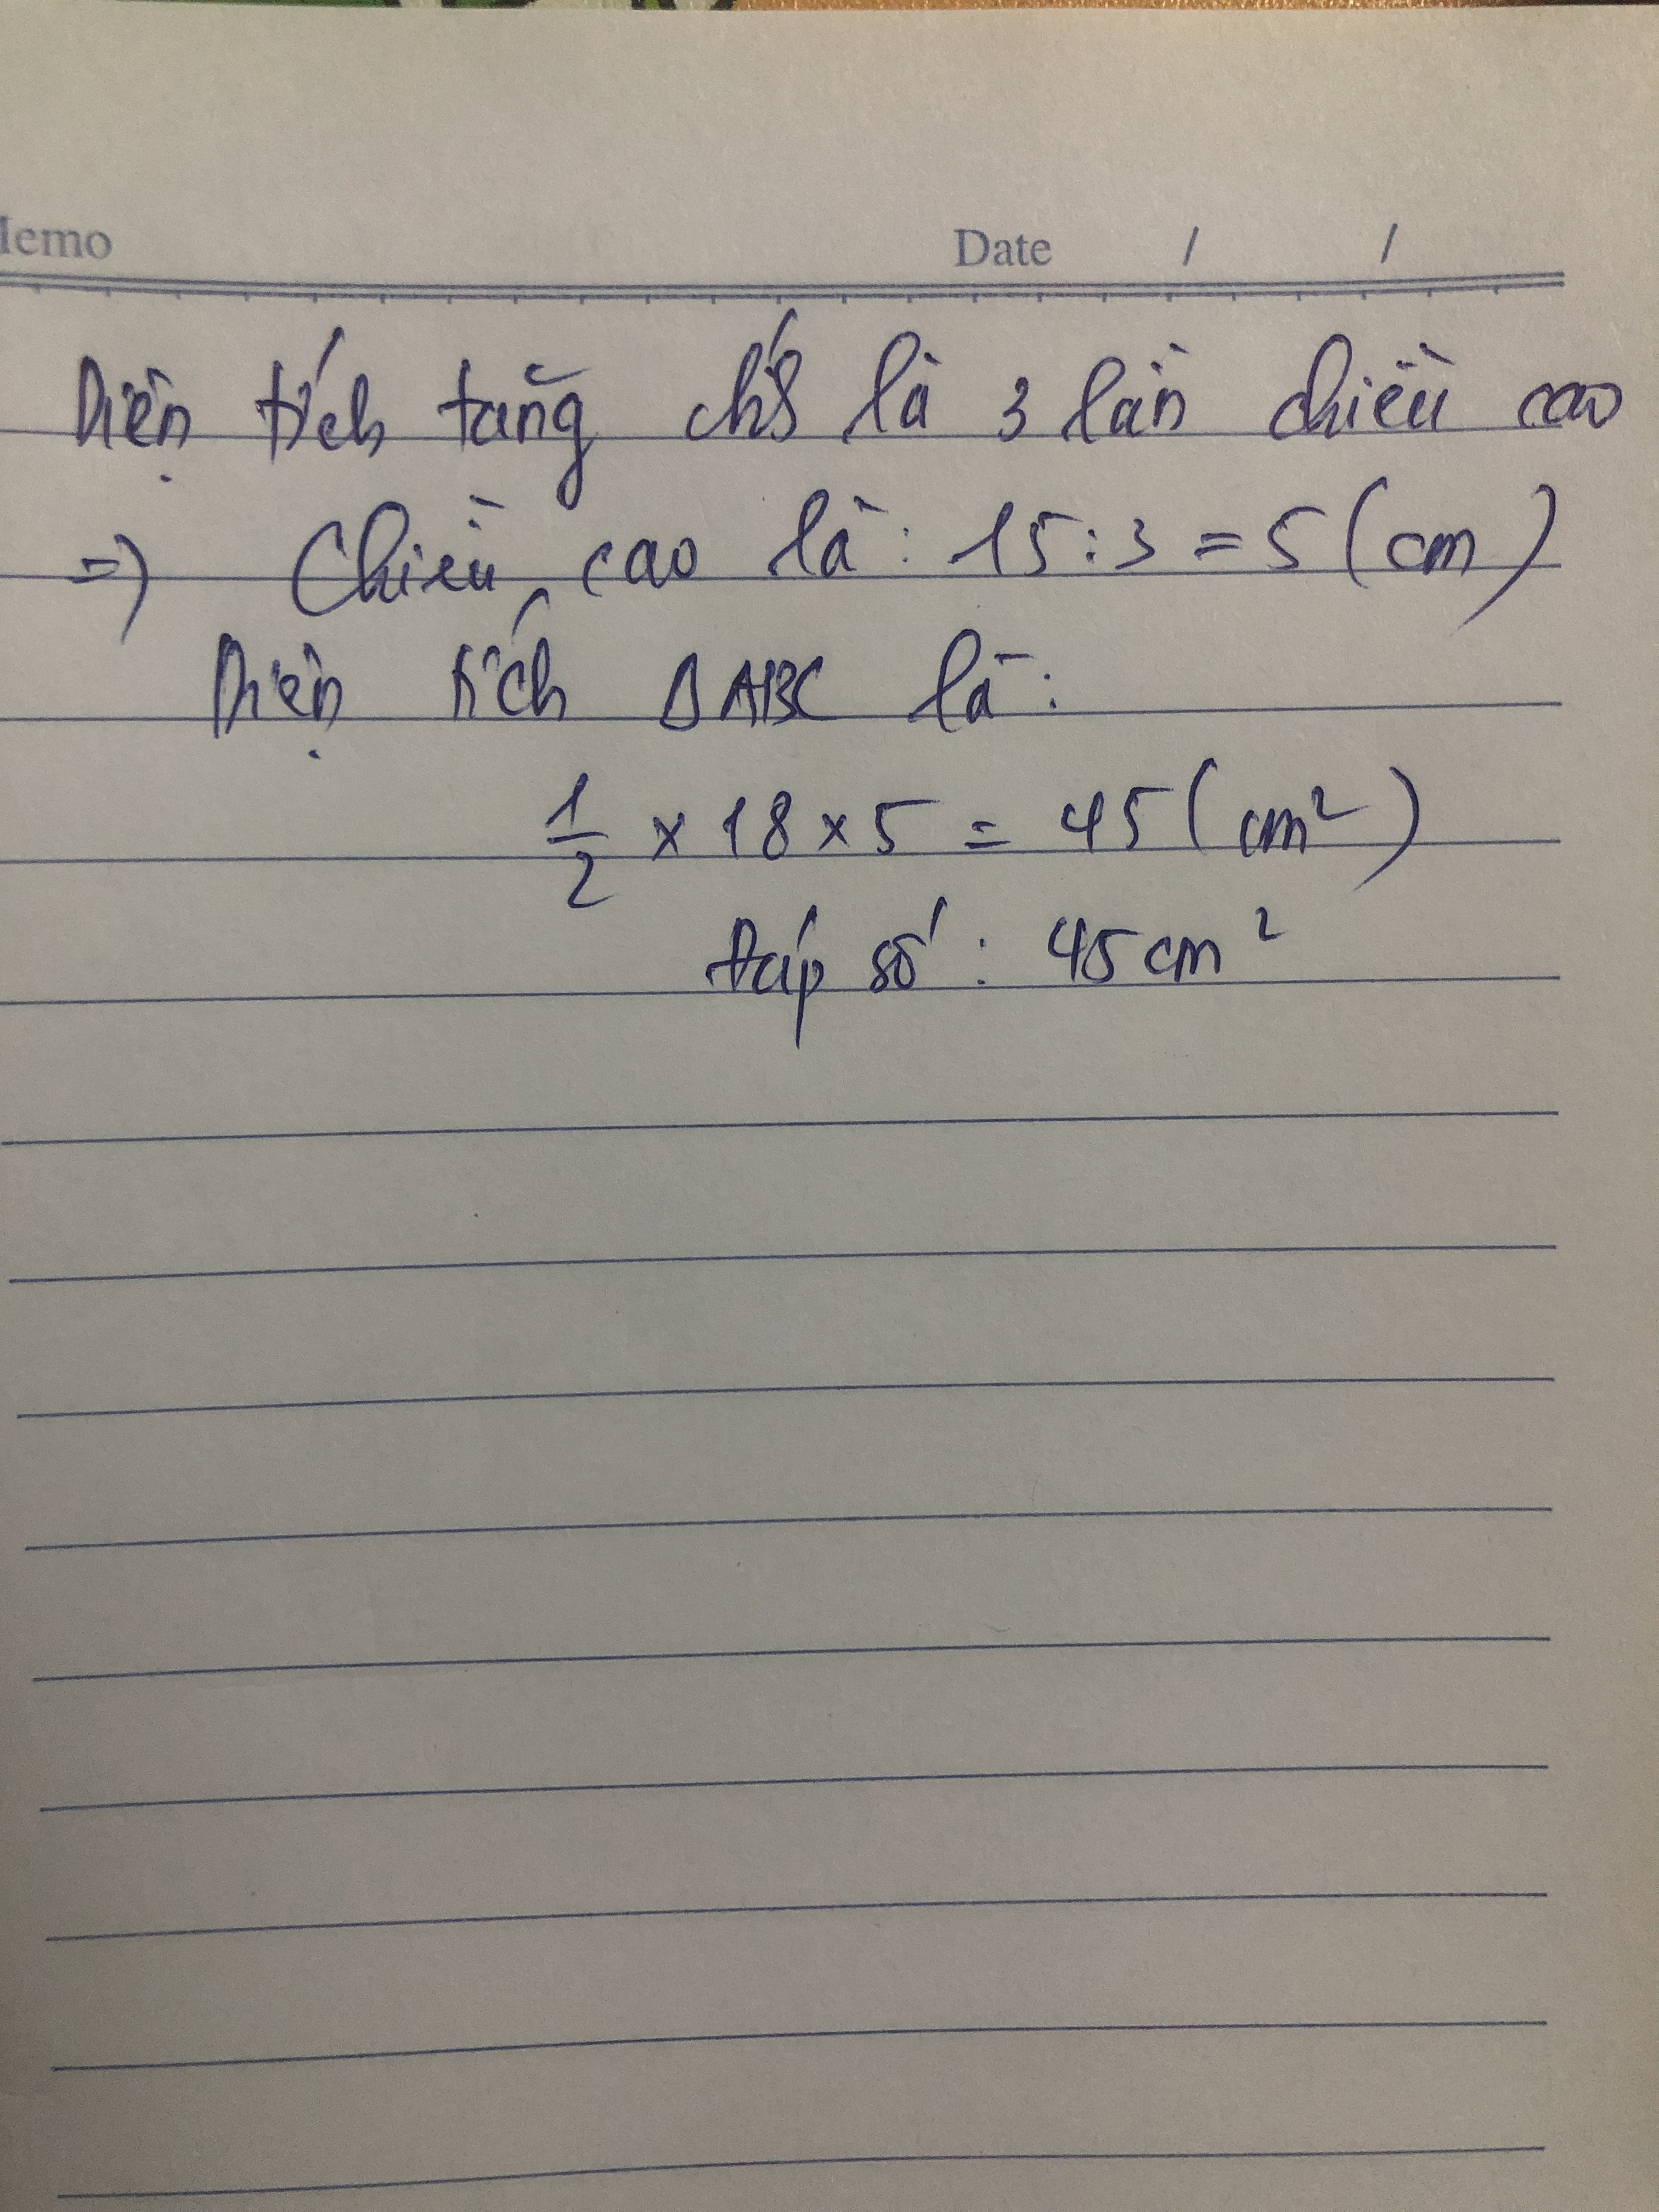 Memo Date / /
Diện tích tăng chính là 3 lần chiều cao
=> Chiều cao là: 15:3=5(cm)
Diện tích Δ ABC là:
1/2 x 18 x 5 = 45 (cm²)
Đáp số: 45 cm²